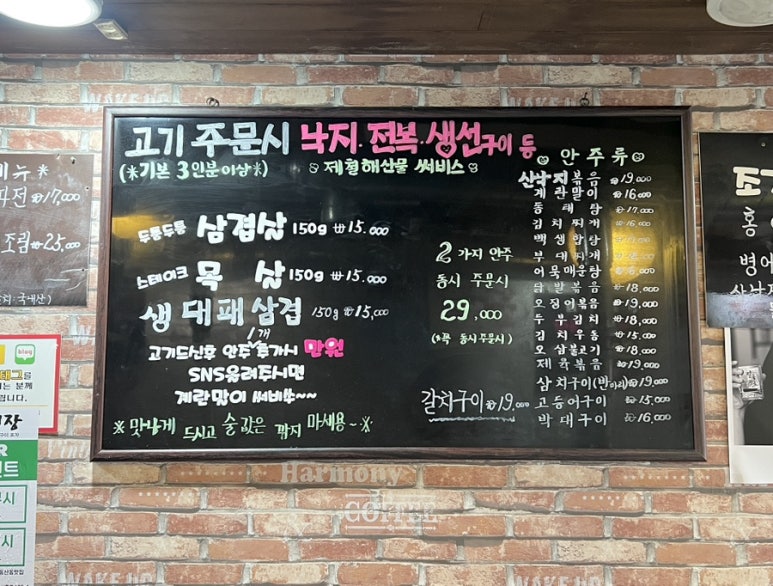 고기 주문시 낙지·전복·생선구이 등
(*기본 3인분이상*)
제철해산물 써비스
두툼두툼 삼겹살 150g ₩15.000
스테이크 목살 150g ₩15.000
생대패삼겹 150g ₩15,000
고기드신후 안주 1개 추가시 만원
SNS올려주시면
계란말이 써비스~~
※맛나게 드시고 술값은 깎지 마세용~※
2가지 안주
동시 주문시
29,000
갈치구이 ₩19.000
안주류
산낙지볶음 ₩19,000
계란말이 ₩16,000
동태탕 ₩17.000
김치찌개 ₩16.000
백생합탕
부대찌개
어묵매운탕
닭발볶음 ₩18,000
오징어볶음 ₩19,000
두부김치 ₩18,000
김치우동 ₩15,000
오삼불고기 ₩18,000
제육볶음 ₩19,000
삼치구이(반마리) ₩19,000
고등어구이 ₩15,000
박대구이 ₩16,000
₩17,000
조림 ₩25,000
국내산)
blog
홍어
병어
Harmony
COFFEE